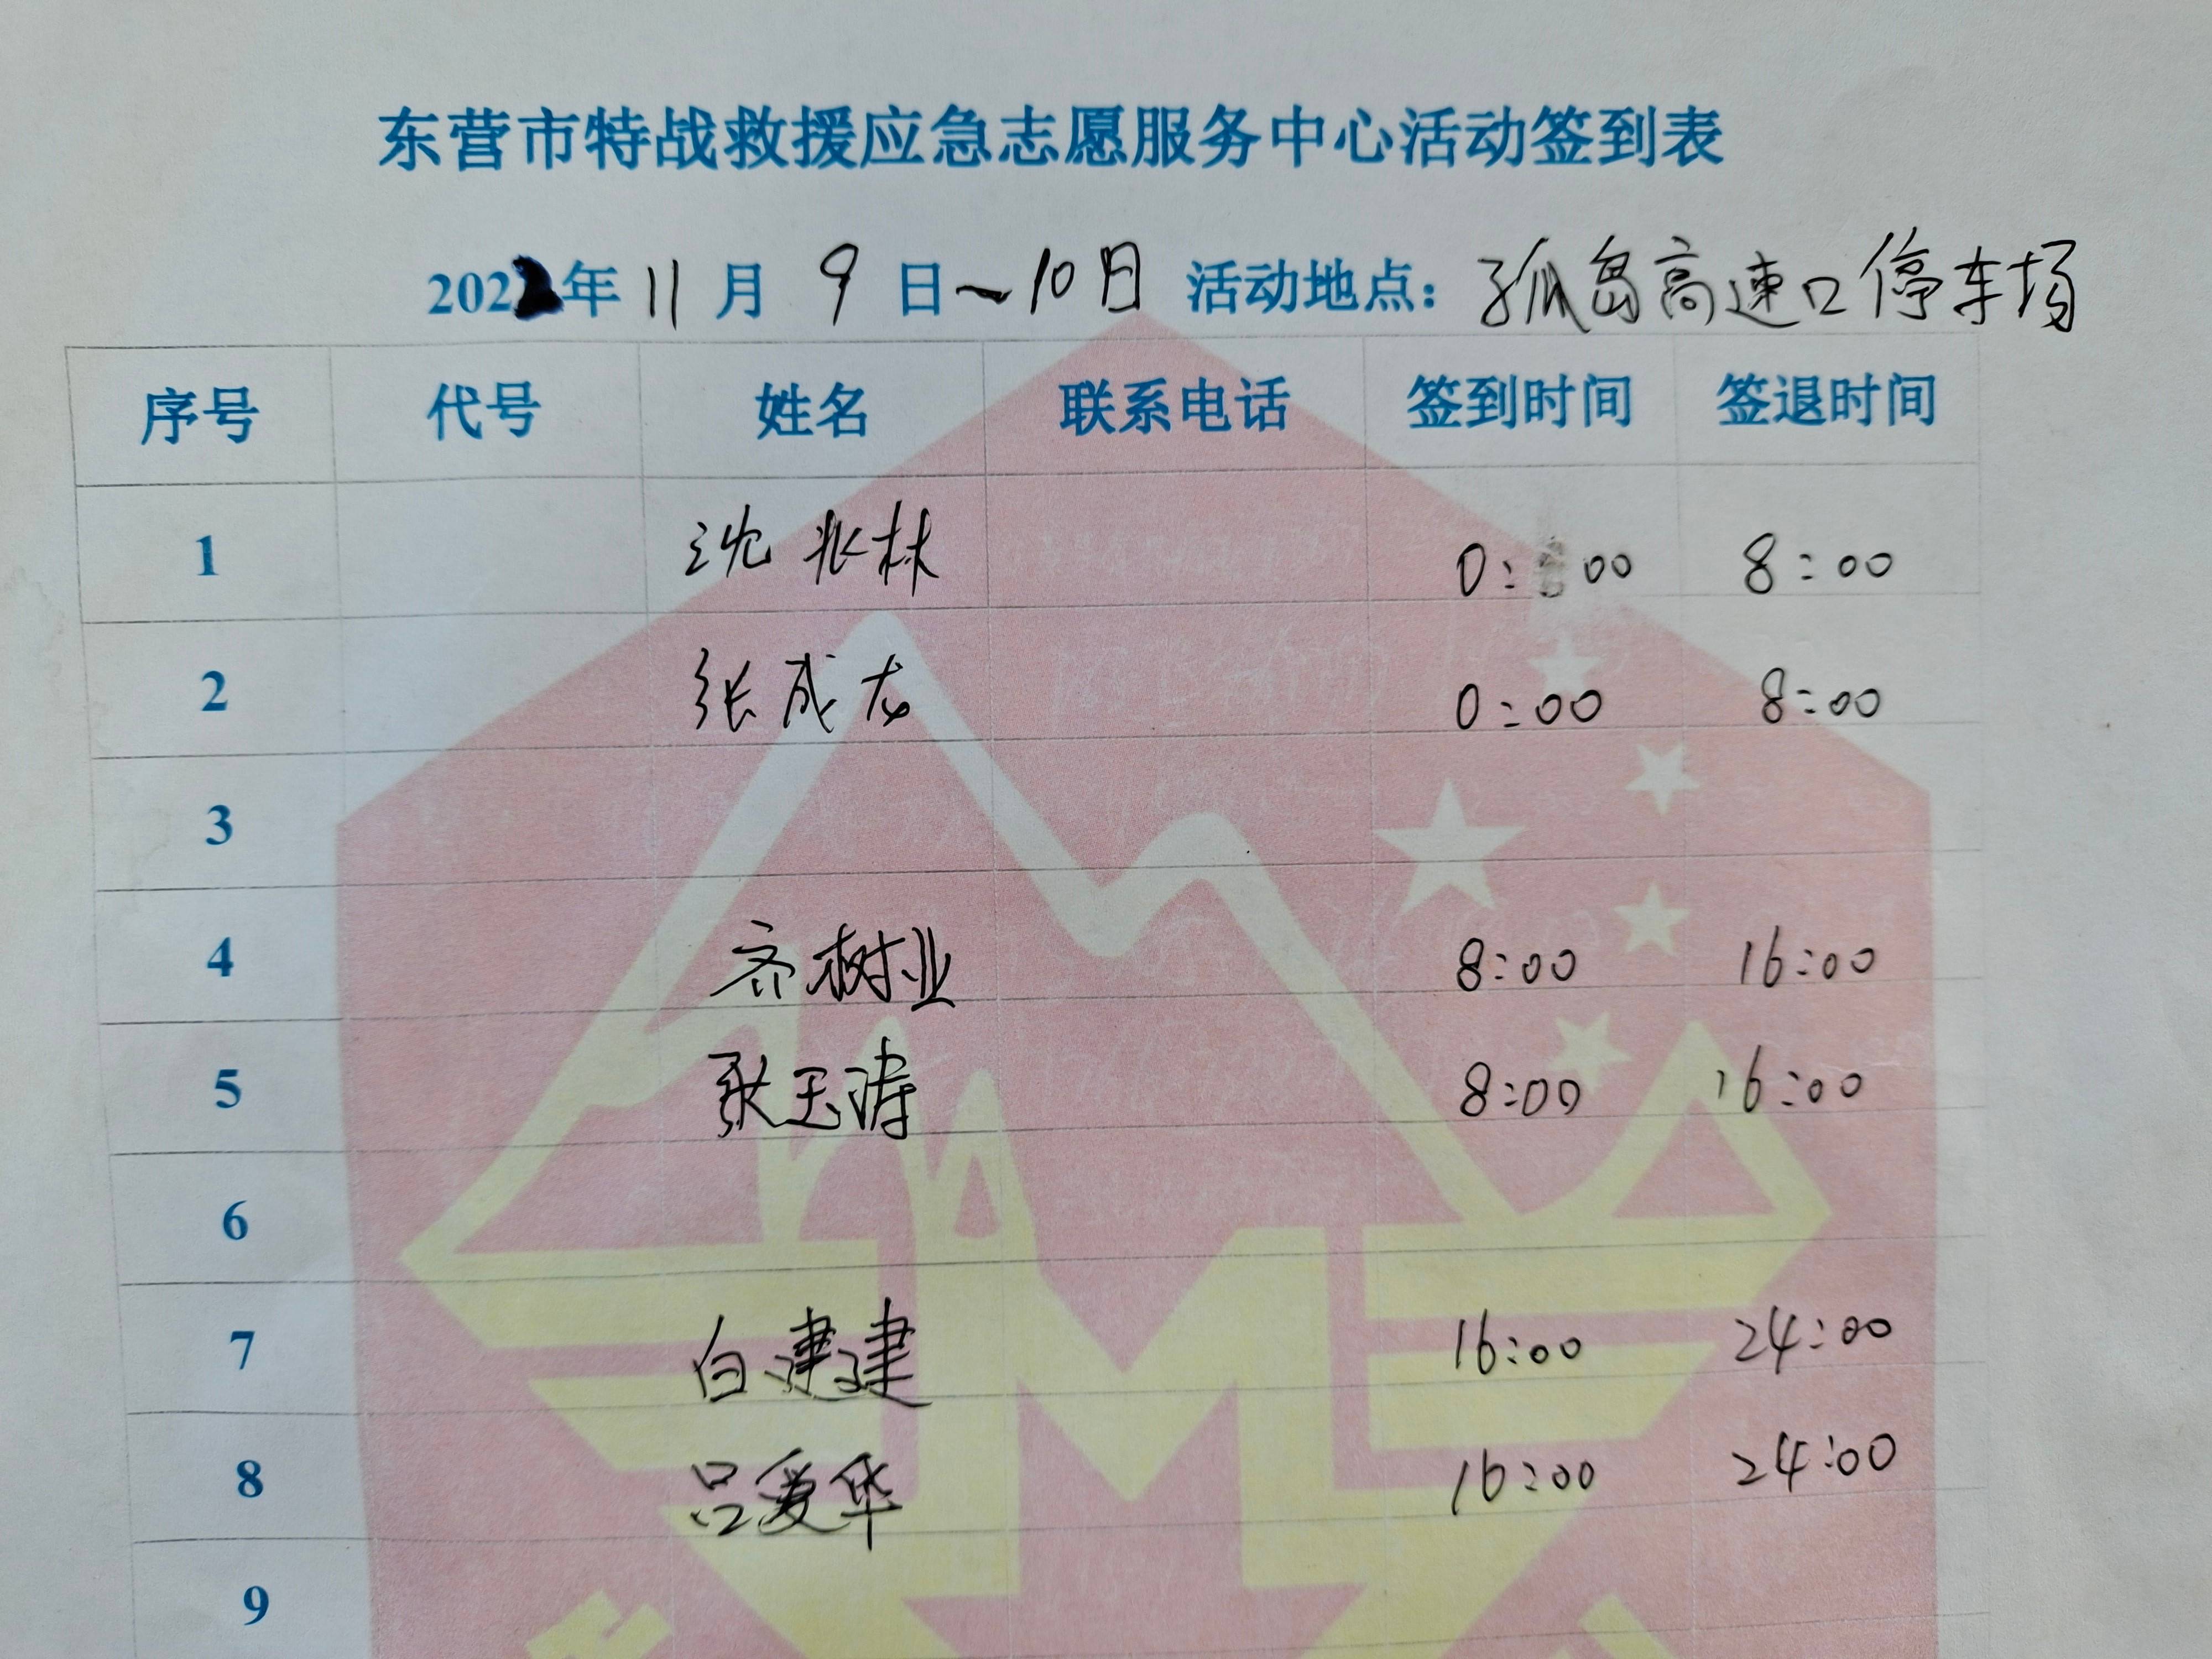 东营市特战救援应急志愿服务中心活动签到表
2022年 11 月 9 日~10日 活动地点：孤岛高速口停车场
序号 代号 姓名 联系电话 签到时间 签退时间
1 沈兆林 0:00 8:00
2 张成龙 0:00 8:00
3
4 齐树业 8:00 16:00
5 耿玉涛 8:00 16:00
6
7 白建建 16:00 24:00
8 吕爱华 16:00 24:00
9